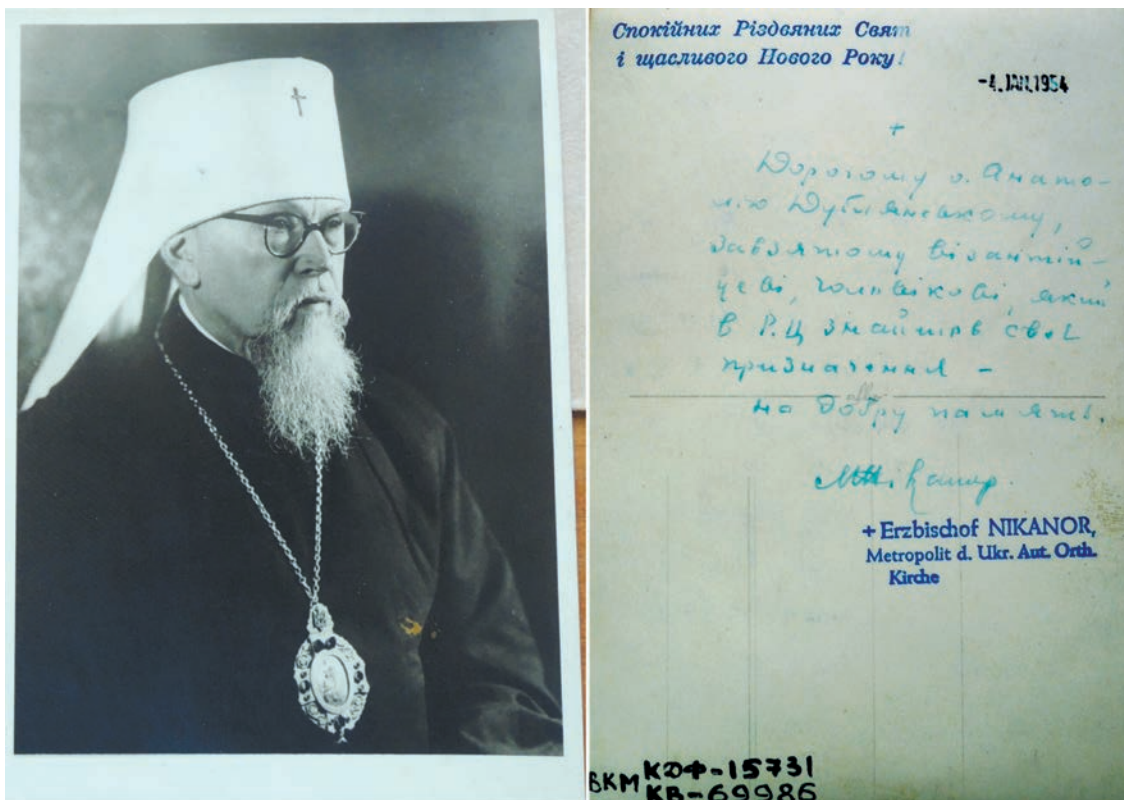 Спокійних Різдвяних Свят
і щасливого Нового Року!
-4. JAN. 1954
+
Дорогому о. Анато-
лію Дублянському,
завзятому візантій-
цеві, чоловікові, який
в Р.Ц знайшов своє
призначення -
на добру пам'ять.
+ Erzbischof NIKANOR,
Metropolit d. Ukr. Aut. Orth.
Kirche
ВКМ КДФ-15731
КВ-69986